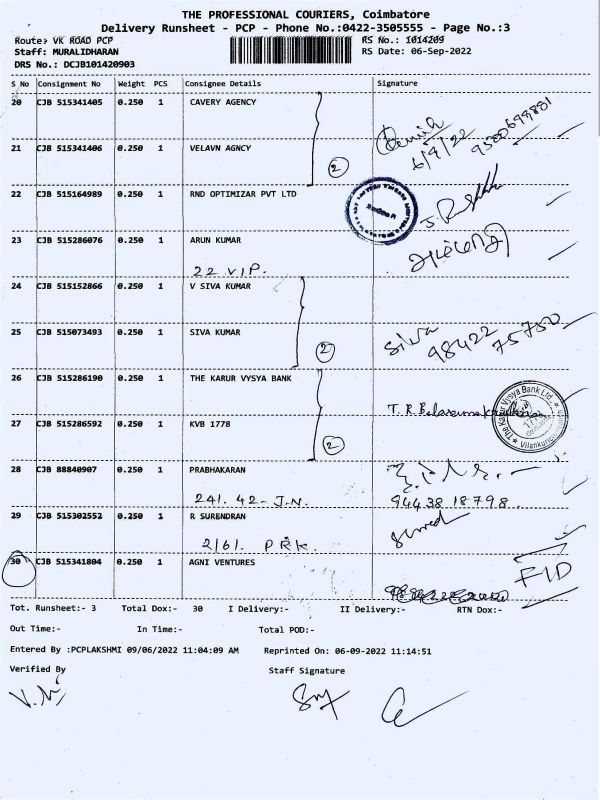 THE PROFESSIONAL COURIERS, Coimbatore
Delivery Runsheet - PCP - Phone No.:0422-3505555 - Page No.:3
Route: VK ROAD PCP RS No.: 1014209
Staff: MURALIDHARAN RS Date: 06-Sep-2022
DRS No.: DCJB101420903
S No Consignment No Weight PCS Consignee Details Signature
20 CJB 515341405 0.250 1 CAVERY AGENCY
6/9/22
21 CJB 515341406 0.250 1 VELAVN AGNCY
2
22 CJB 515164989 0.250 1 RND OPTIMIZAR PVT LTD
23 CJB 515286076 0.250 1 ARUN KUMAR
22 V.I.P.
24 CJB 515152866 0.250 1 V SIVA KUMAR
25 CJB 515073493 0.250 1 SIVA KUMAR
2 Siva 98422 75700
26 CJB 515286190 0.250 1 THE KARUR VYSYA BANK
The Karur Vysya Bank Ltd.
27 CJB 515286592 0.250 1 KVB 1778
2
28 CJB 88840907 0.250 1 PRABHAKARAN
241. 42- J.N. 94438 18798
29 CJB 515302552 0.250 1 R SURENDRAN
2/61. P R K.
30 CJB 515341804 0.250 1 AGNI VENTURES
Tot. Runsheet:- 3 Total Dox:- 30 I Delivery:- II Delivery:- RTN Dox:-
Out Time:- In Time:- Total POD:-
Entered By :PCPLAKSHMI 09/06/2022 11:04:09 AM Reprinted On: 06-09-2022 11:14:51
Verified By Staff Signature